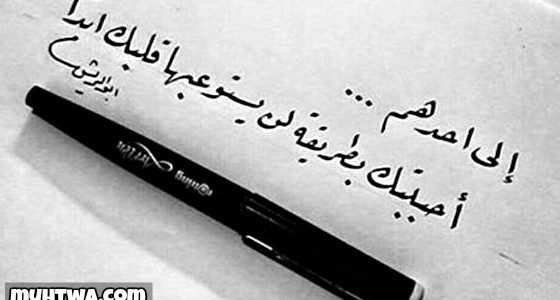 إلى احدهم ...
أحببتك بطريقة لن يستوعبها قلبك ابداً
Artline
MUHTWA.COM